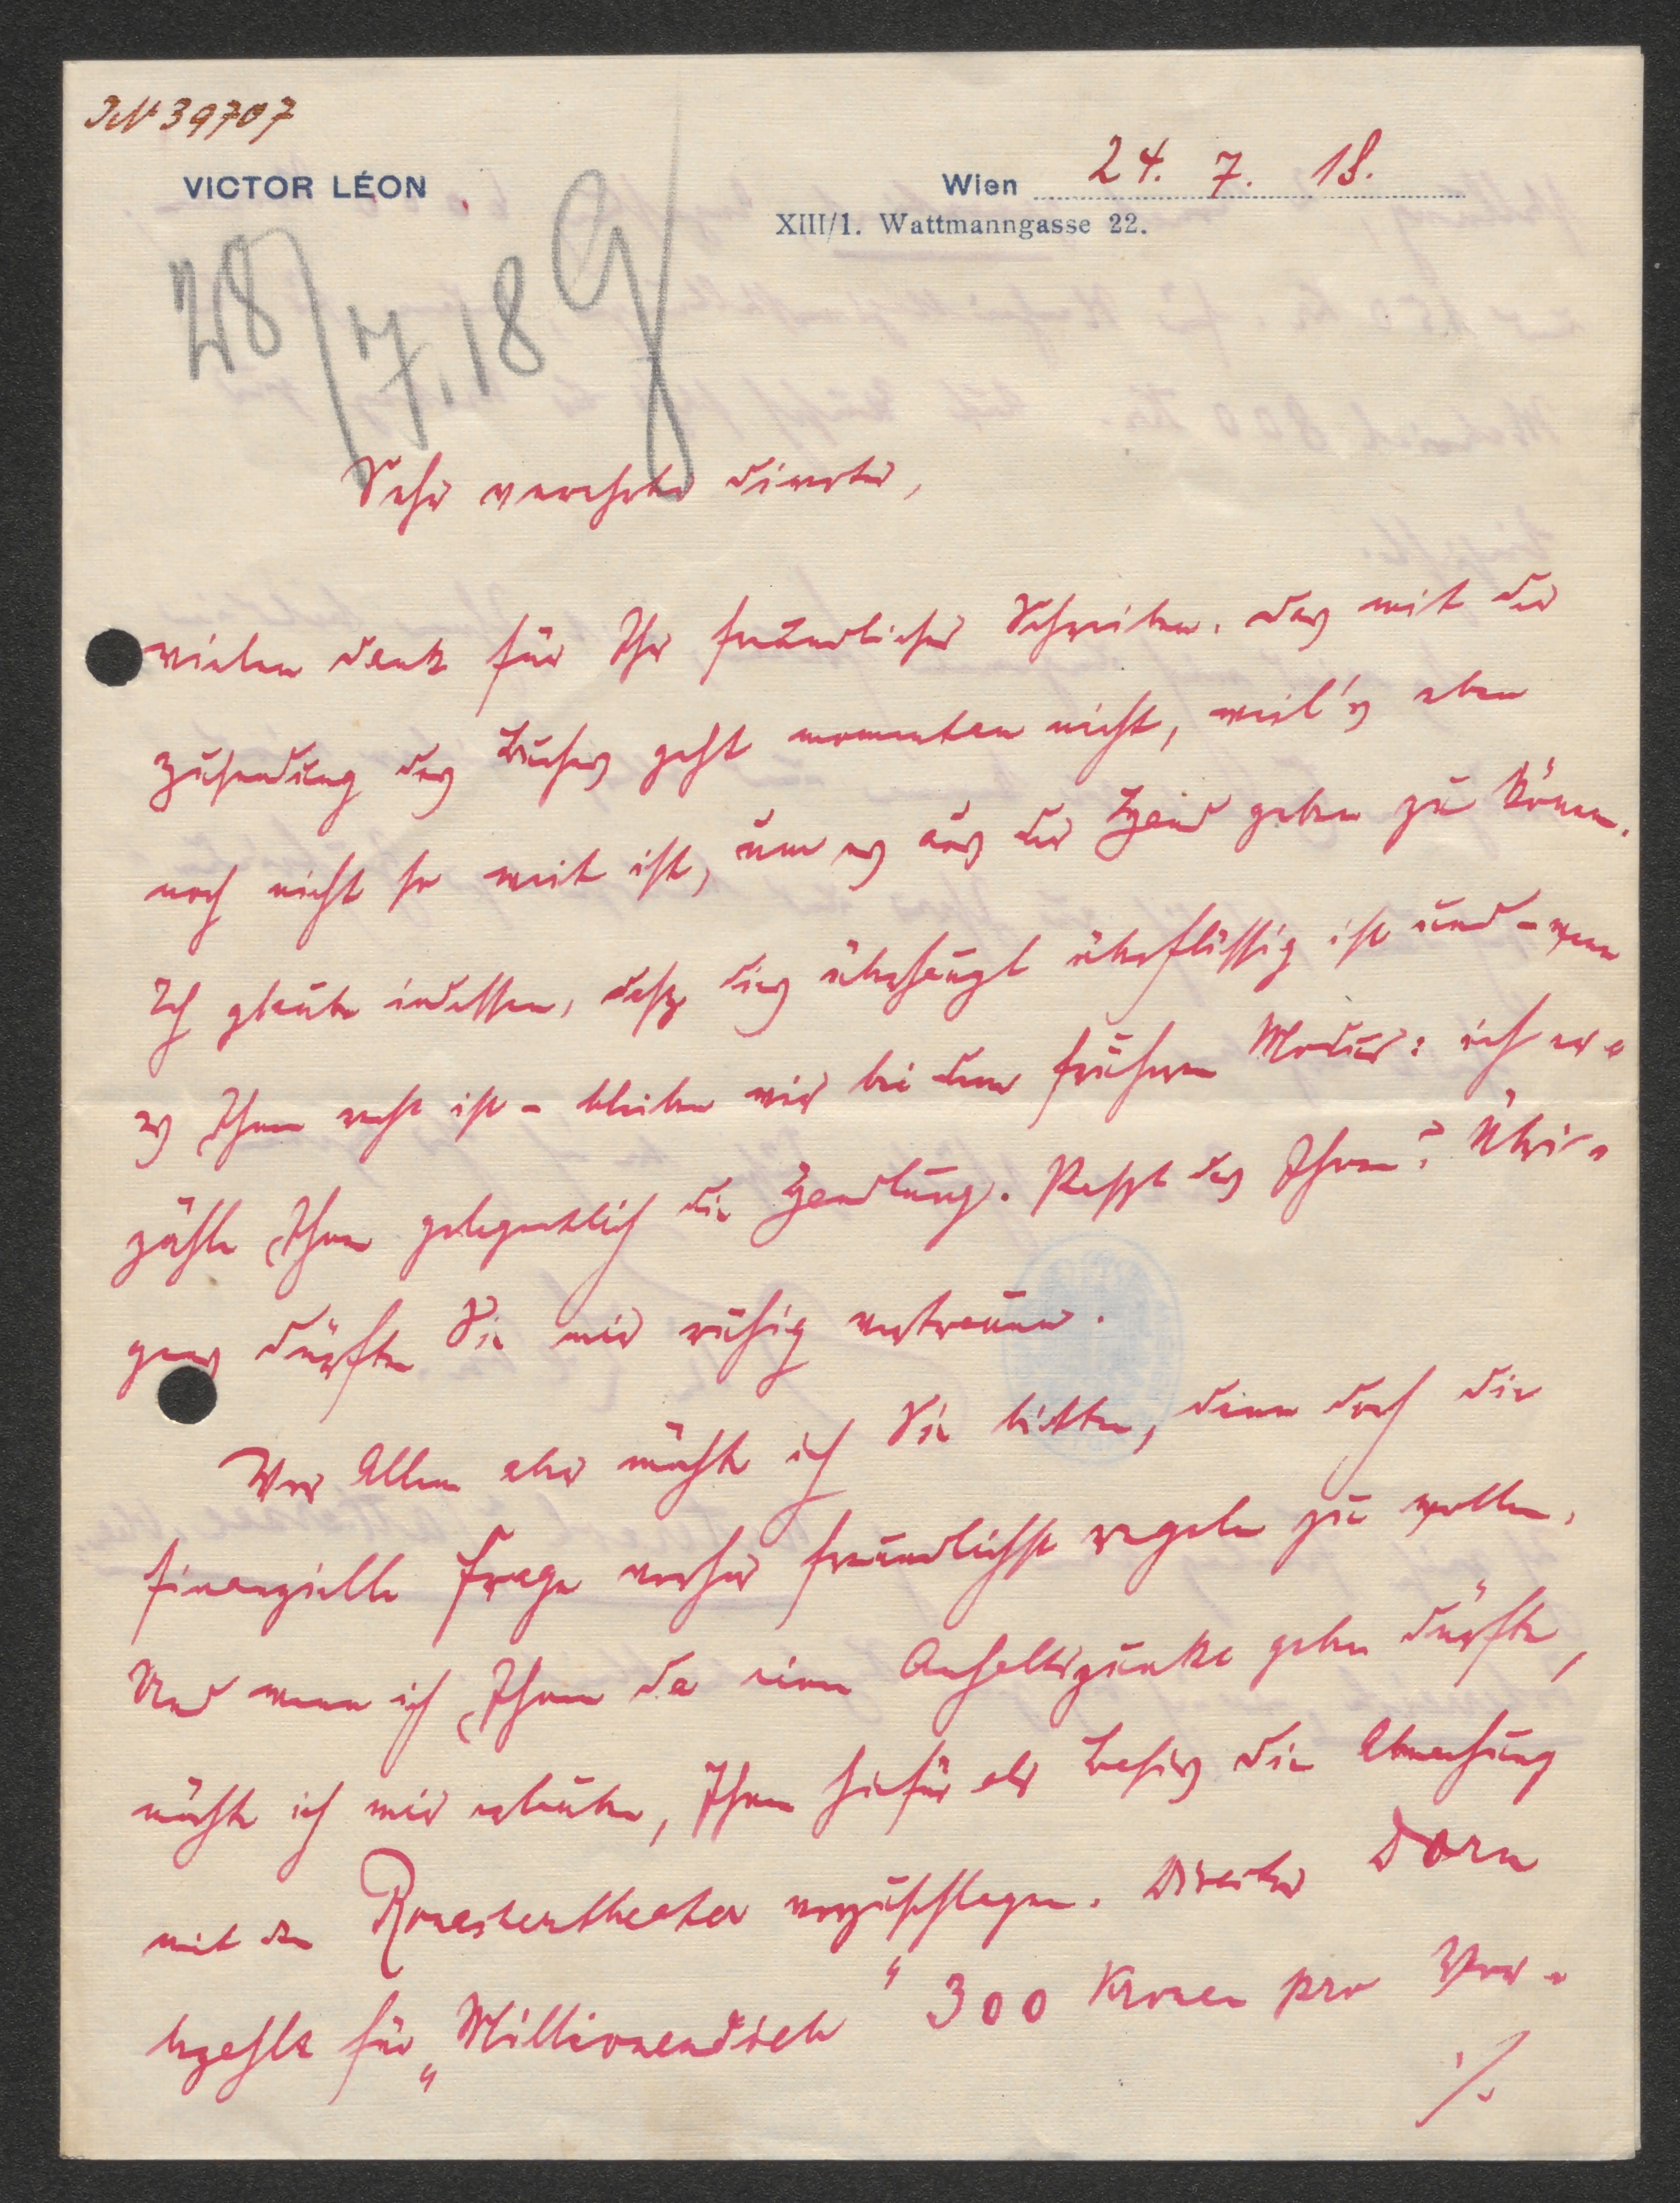 IN 39707
VICTOR LÉON
Wien 24. 7. 18.
XIII/1. Wattmanngasse 22.
28/7.18
Sehr verehrter Director,
vielen Dank für Ihr freundliches Schreiben. Das mit der
Zusendung des Buches geht momentan nicht, weil's eben
noch nicht so weit ist, um es aus der Hand geben zu können.
Ich glaube indessen, dass dies überhaupt überflüssig ist und – wenn
es Ihnen recht ist – bleiben wir bei dem früheren Modus: ich er-
zähle Ihnen gelegentlich die Handlung. Passt das Ihnen? Übri-
gens dürften Sie mir ruhig vertrauen.
Vor Allem aber möchte ich Sie bitten, denn doch die
finanzielle Frage vorher freundlichst regeln zu wollen.
Und wenn ich Ihnen da einen Anhaltspunkt geben dürfte,
möchte ich mir erlauben, Ihnen hiefür als Basis die Abmachung
mit dem Ronachertheater vorzuschlagen. Director Dorn
bezahlt für „Millionendieb" 300 Kronen pro Vor-
./.